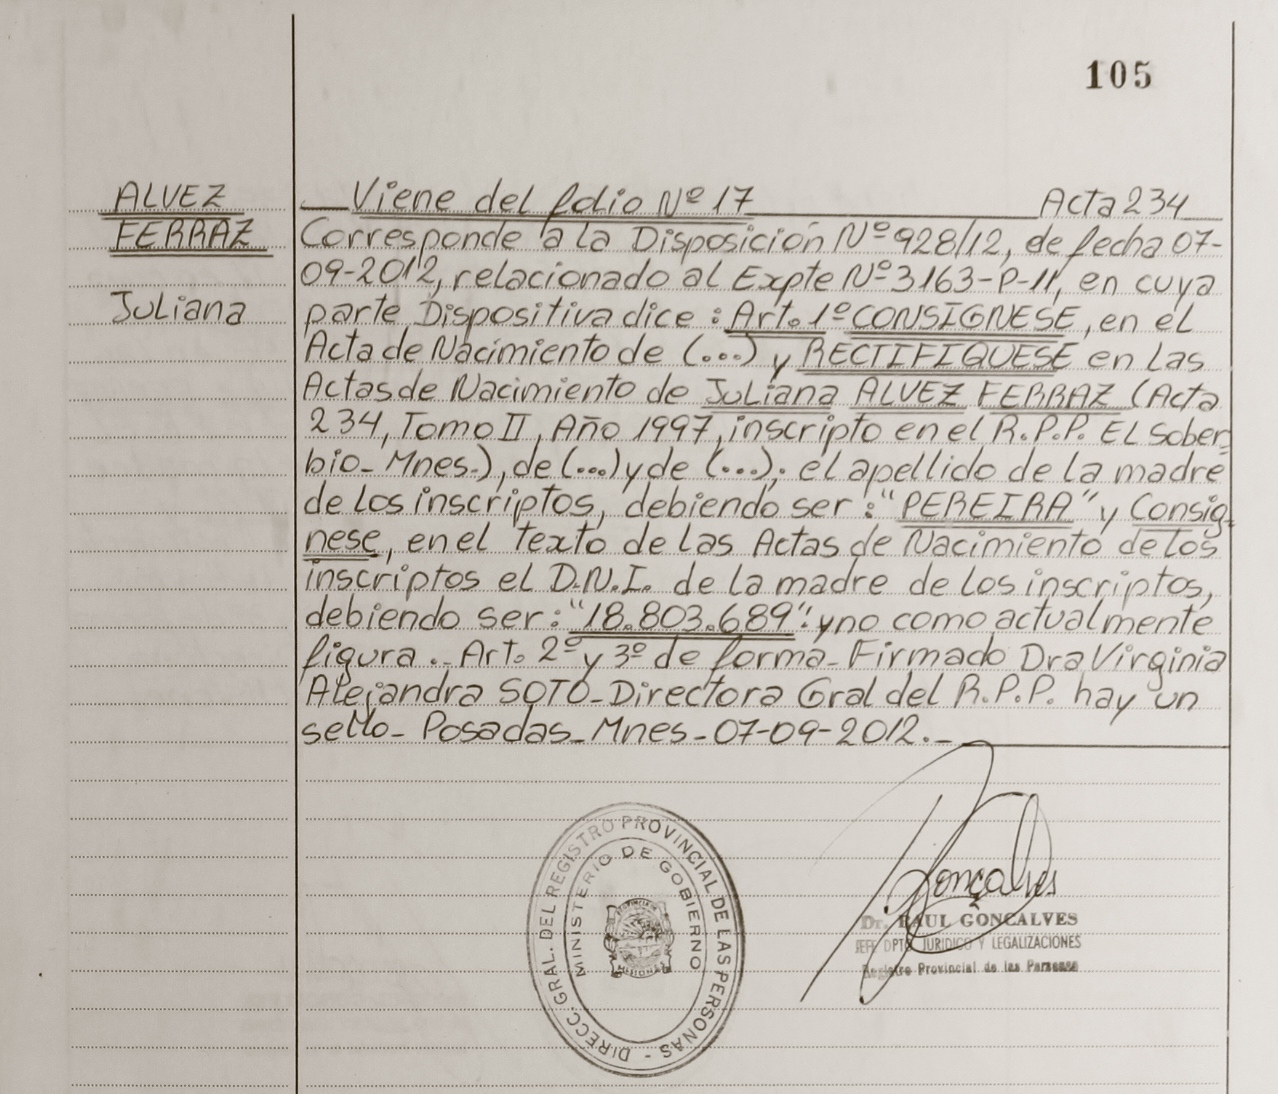 105
ALVEZ
FERRAZ
Juliana
Viene del folio Nº 17 Acta 234
Corresponde a la Disposición Nº 928/12, de fecha 07-
09-2012, relacionado al Expte Nº 3163-P-11, en cuya
parte Dispositiva dice: Art. 1º CONSIGNESE, en el
Acta de Nacimiento de (...) y RECTIFIQUESE en las
Actas de Nacimiento de Juliana ALVEZ FERRAZ (Acta
234, Tomo II, Año 1997, inscripto en el R.P.P. EL Sober
bio- Mnes.), de (...) y de (...); el apellido de la madre
de los inscriptos, debiendo ser: "PEREIRA" y Consig
nese, en el texto de las Actas de Nacimiento de los
inscriptos el D.N.I. de la madre de los inscriptos,
debiendo ser: "18.803.689" y no como actualmente
figura.- Art. 2º y 3º de forma- Firmado Dra Virginia
Alejandra SOTO- Directora Gral del R.P.P. hay un
sello- Posadas- Mnes- 07-09-2012.-
DIRECC. GRAL. DEL REGISTRO PROVINCIAL DE LAS PERSONAS -
MINISTERIO DE GOBIERNO
MISIONES
Gonçalves
Dr. RAUL GONCALVES
JEFE DPTO JURIDICO Y LEGALIZACIONES
Registro Provincial de las Personas